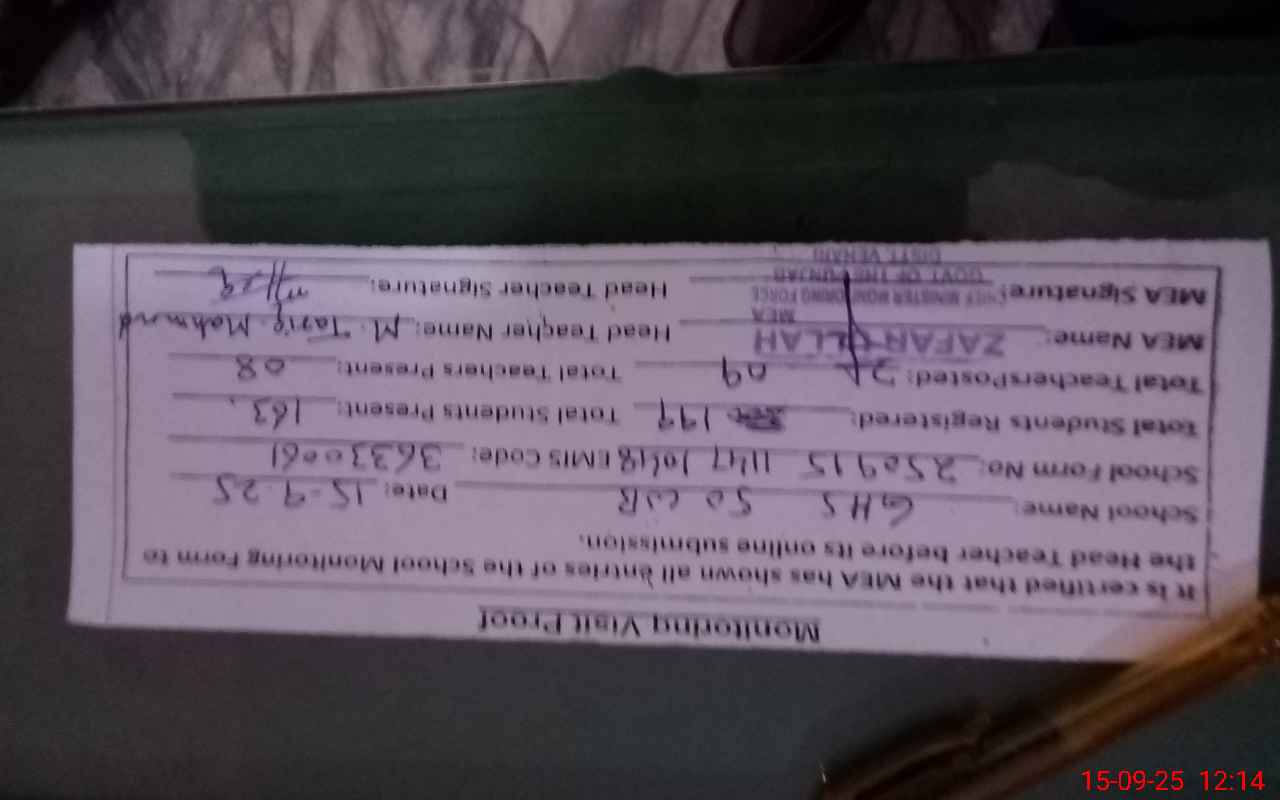 Monitoring Visit Proof
It is certified that the MEA has shown all entries of the School Monitoring Form to
the Head Teacher before its online submission.
School Name: GHS 50 WB Date: 15-9-25
School Form No: 250915 1147 10418 EMIS Code: 36330061
Total Students Registered: 199 Total Students Present: 163
Total TeachersPosted: 09 Total Teachers Present: 08
MEA Name: ZAFAR ULLAH Head Teacher Name: M. Tariq Mahmood
MEA
CHIEF MINISTER MONITORING FORCE
MEA Signature: Head Teacher Signature:
GOVT OF THE PUNJAB
DISTT. VEHARI
15-09-25 12:14